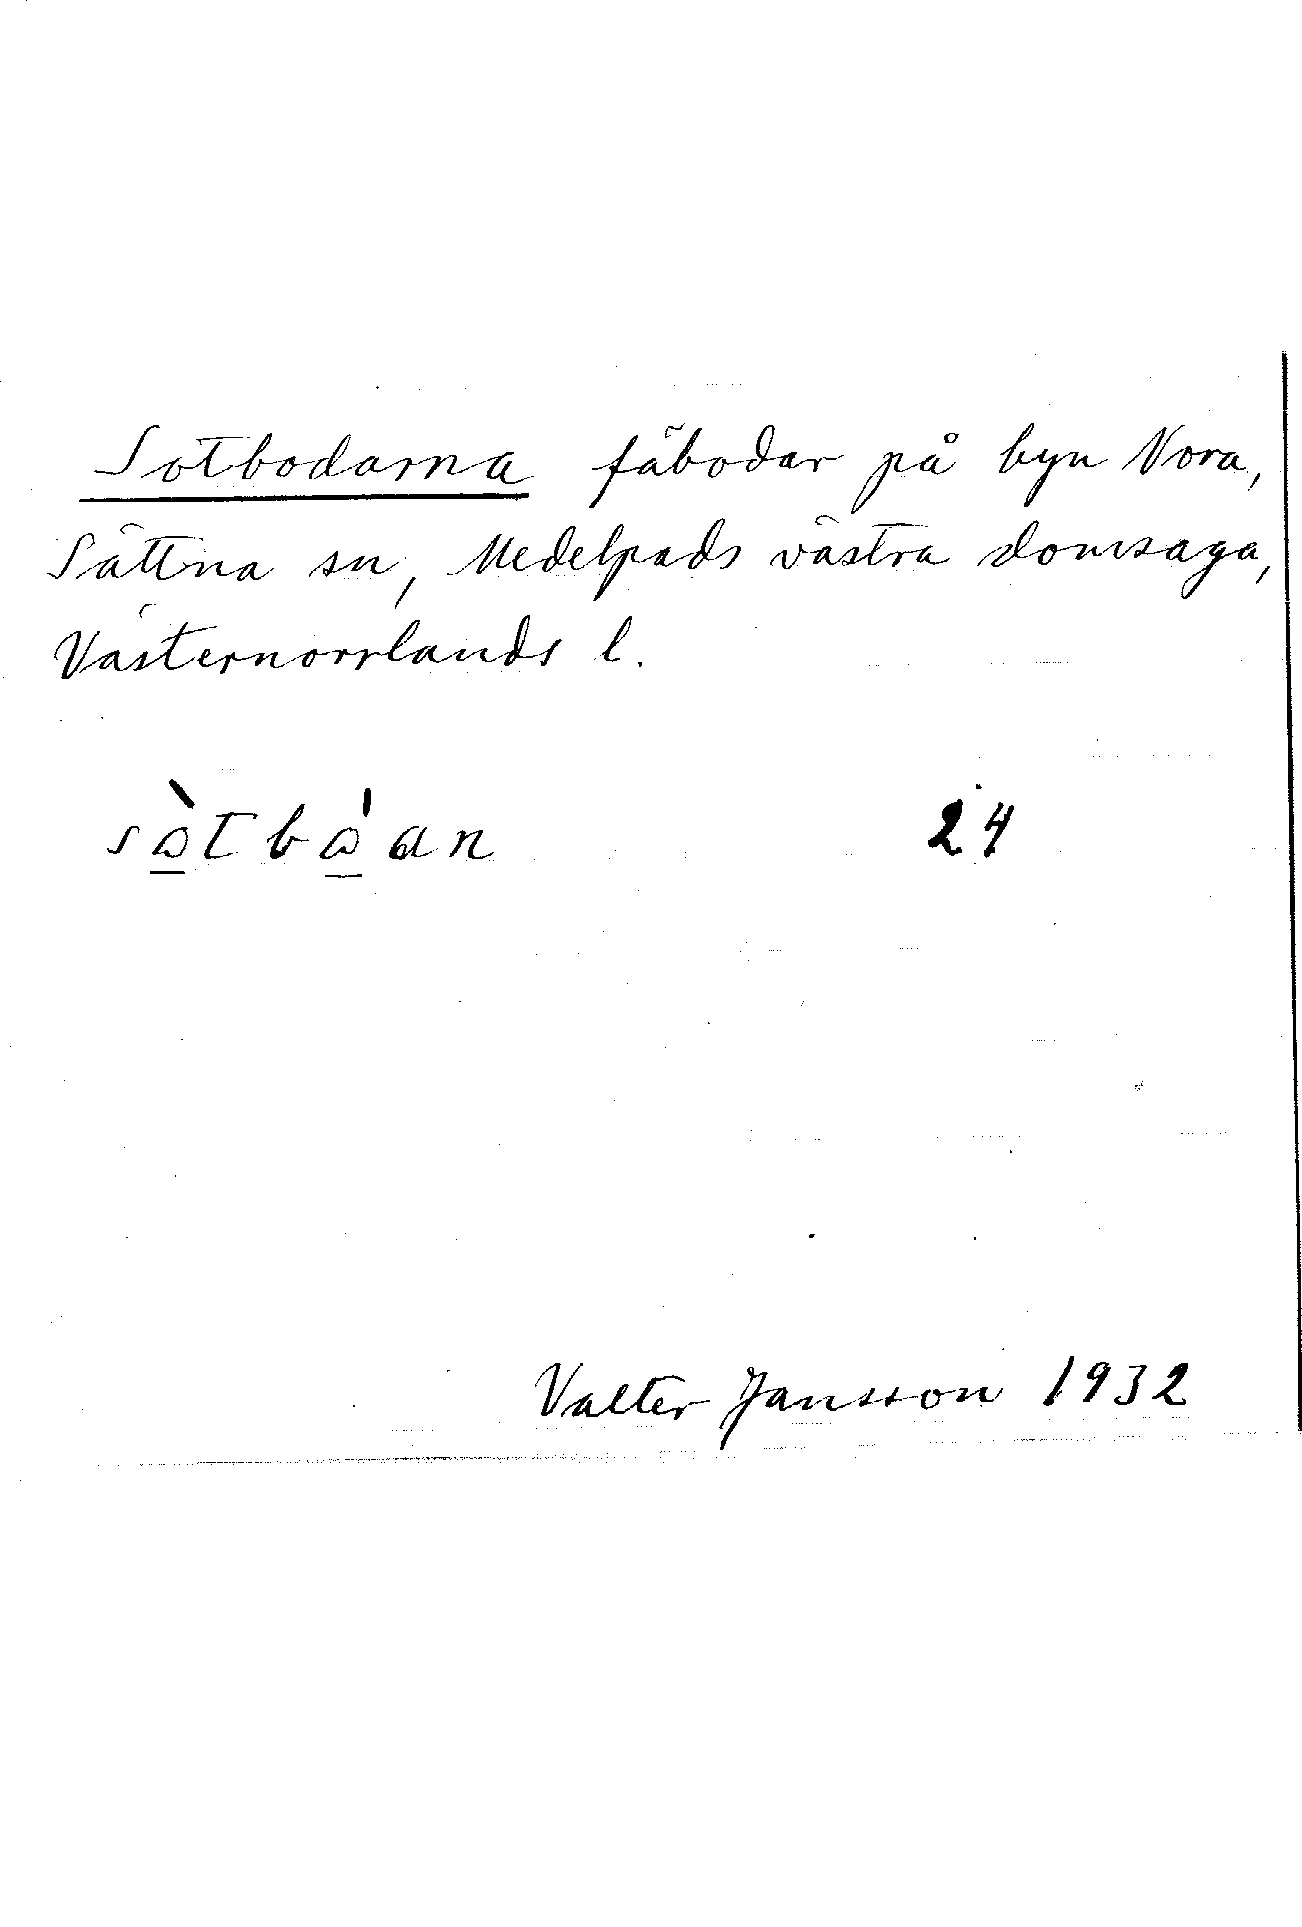 Sotbodarna fäbodar på byn Nora,
Sättna sn, Medelpads västra domsaga,
Västernorrlands l.
sòtbò'an 24
Valter Jansson 1932